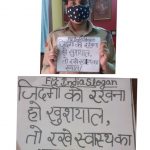 Fit India Slogan
जिंदगी को रखना
हो खुशयाल,
तो रखे स्वास्थ्य का
Fit India Slogan
जिंदगी को रखना
हो खुशयाल,
तो रखे स्वास्थ्य का